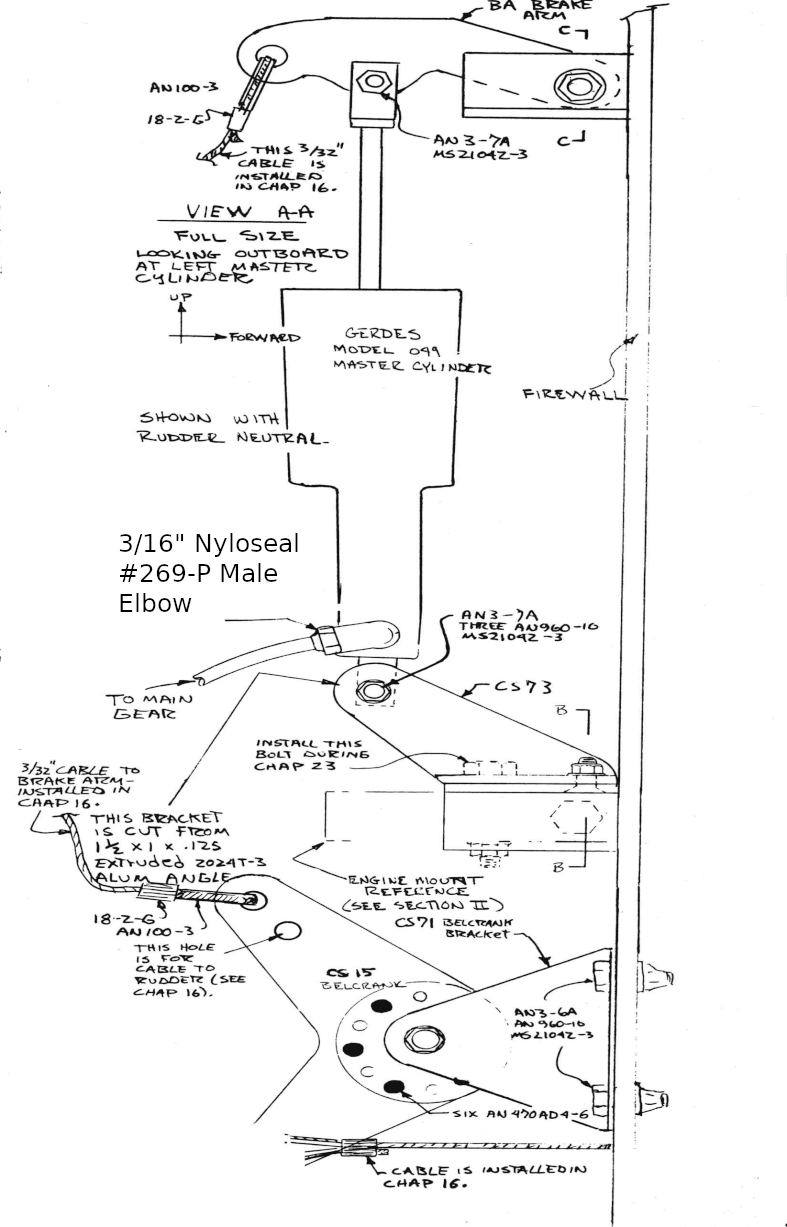 BA BRAKE
ARM
C
AN100-3
18-2-G
THIS 3/32"
CABLE IS
INSTALLED
IN CHAP 16.
AN3-7A
MS21042-3
C
VIEW A-A
FULL SIZE
LOOKING OUTBOARD
AT LEFT MASTER
CYLINDER
UP
FORWARD
GERDES
MODEL 099
MASTER CYLINDER
FIREWALL
SHOWN WITH
RUDDER NEUTRAL
3/16" Nyloseal
#269-P Male
Elbow
AN3-7A
THREE AN960-10
MS21042-3
TO MAIN
GEAR
CS73
B
INSTALL THIS
BOLT DURING
CHAP 23
3/32" CABLE TO
BRAKE ARM-
INSTALLED IN
CHAP 16.
THIS BRACKET
IS CUT FROM
1½ x 1 x .125
EXTRUDED 2024T-3
ALUM ANGLE
B
ENGINE MOUNT
REFERENCE
(SEE SECTION II)
18-2-G
AN100-3
CS71 BELCRANK
BRACKET
THIS HOLE
IS FOR
CABLE TO
RUDDER (SEE
CHAP 16).
CS15
BELCRANK
AN3-6A
AN960-10
MS21042-3
SIX AN470AD4-6
CABLE IS INSTALLED IN
CHAP 16.